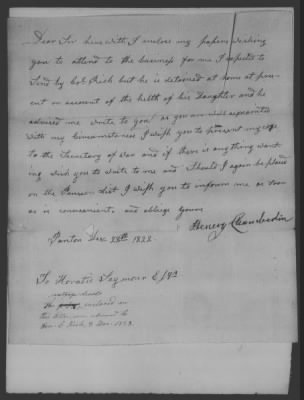 Dear Sir here with I inclose my papers wishing
you to attend to the business for me I expected to
Send by Col. Rich but he is detained at home at pres-
ent on account of the helth of his Daughter and he
advised me write to you as you are well acquainted
with my Circumstances I wish you to present my case
to the Secretary of War and if there is anything want
ing wish you to write to me and Should I again be placed
on the Pension List I wish you to inform me as soon
as is convenient, and oblige yours
Henery Chamberlin
Panton Dec. 28th 1822.
To Horatio Seymour Esqr
The inclosed in
this letter was returned to
Hon. C. Rich, 9 Dec. 1823.